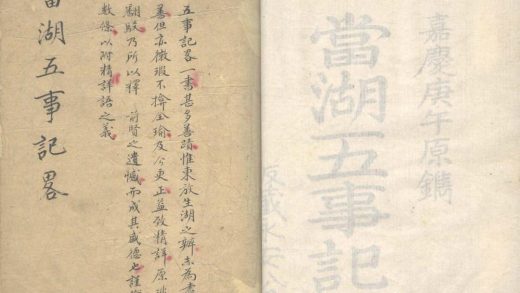 嘉慶庚午原鐫
當湖五事記
五事記畧一書甚多善蹟惟東放生湖之辨未為
善但亦微瑕不揜全瑜及今更正益致精詳原
翻駁乃所以釋 前賢之遺憾而成其盛德也謹
數條以附精詳語之義
當湖五事記畧